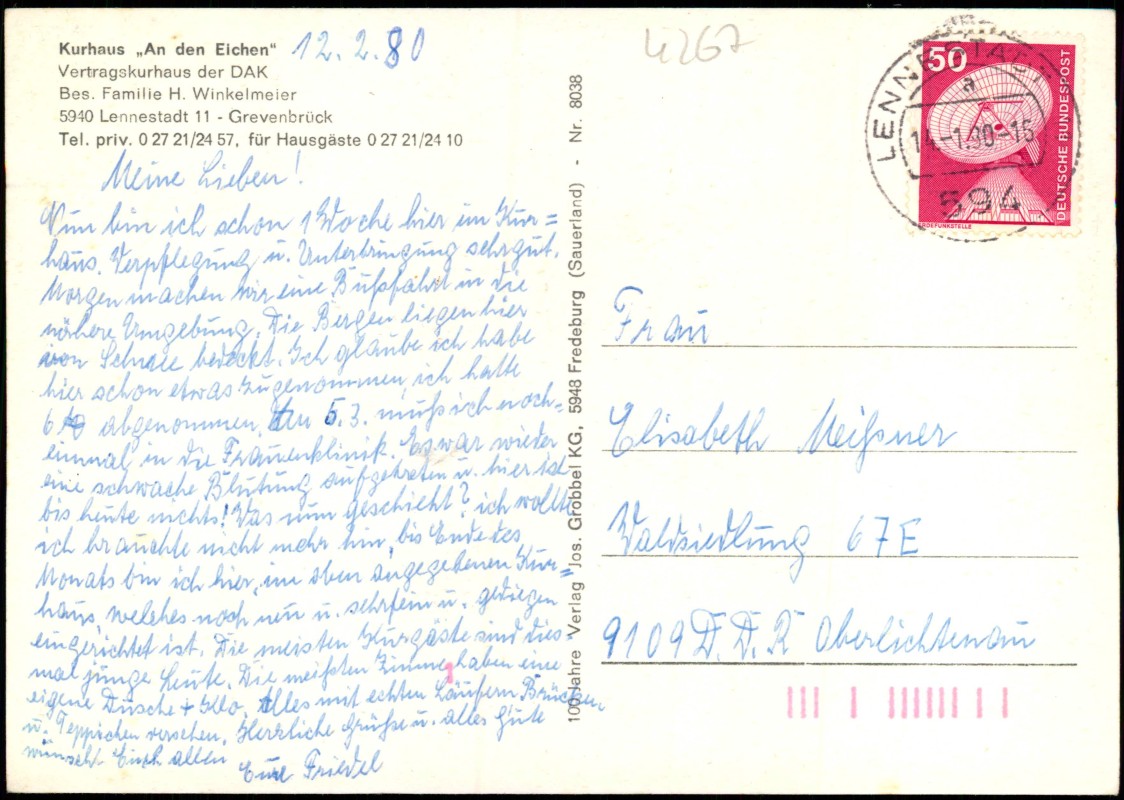 Kurhaus „An den Eichen"
12.2.80
Vertragskurhaus der DAK
Bes. Familie H. Winkelmeier
5940 Lennestadt 11 - Grevenbrück
Tel. priv. 0 27 21/24 57, für Hausgäste 0 27 21/24 10
Meine Lieben!
Nun bin ich schon 1 Woche hier im Kur=
haus. Verpflegung u. Unterbringung sehr gut.
Morgen machen wir eine Bußfahrt in die
nähere Umgebung. Die Bergen liegen hier
von Schnee bedeckt. Ich glaube ich habe
hier schon etwas zugenommen, ich hatte
6 abgenommen. Am 5.3. muß ich noch=
einmal in die Frauenklinik. Es war wieder
eine schwache Blutung aufgetreten u. hier ist
bis heute nichts! Was nun geschieht? ich wollte
ich brauchte nicht mehr hin, bis Ende des
Monats bin ich hier, im oben angegebenen Kur=
haus, welches noch neu u. sehr fein u. gediegen
eingerichtet ist. Die meisten Kurgäste sind dies=
mal junge Leute. Die meißten Zimmer haben eine
eigene Dusche + Klo. Alles mit echten Läufern Brücken
u. Teppichen versehen. Herzliche Grüße u. alles Gute
wünscht Euch allen
Eure Friedel
100 Jahre Verlag Jos. Grobbel KG, 5948 Fredeburg (Sauerland) - Nr. 8038
4267
50
DEUTSCHE BUNDESPOST
ERDEFUNKSTELLE
LENNESTADT 1
a
14.-1.80-16
594
Frau
Elisabeth Meißner
Waldsiedlung 67E
9109 D.D.R Oberlichtenau
1